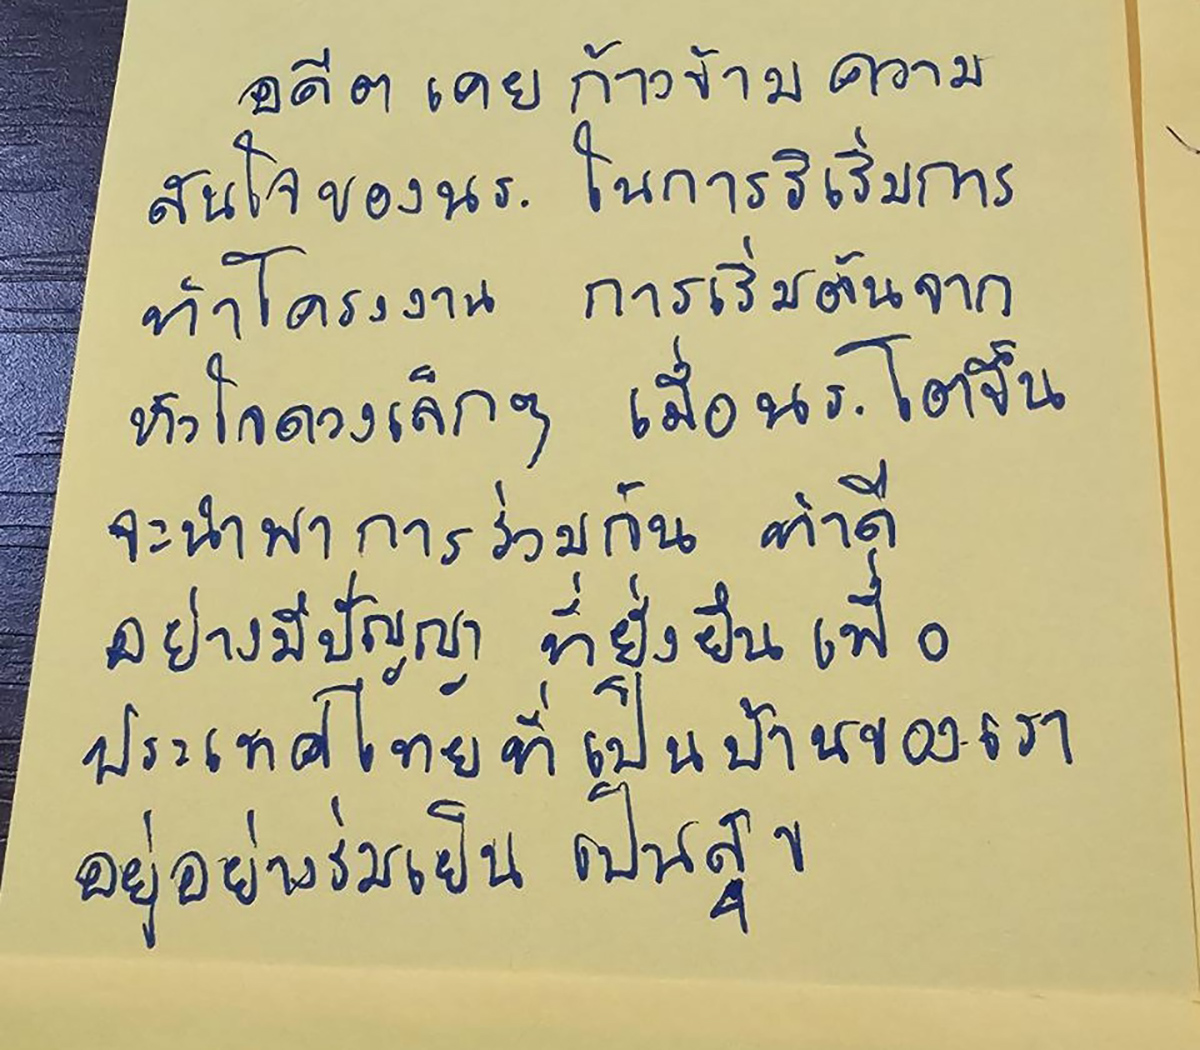 อดีตเคยก้าวข้ามความ
สนใจของนร. ในการริเริ่มการ
ทำโครงงาน การเริ่มต้นจาก
หัวใจดวงเล็กๆ เมื่อนร. โตขึ้น
จะนำพาการร่วมกัน ทำดี
อย่างมีปัญญา ที่ยั่งยืนเพื่อ
ประเทศไทยที่เป็นบ้านของเรา
อยู่อย่างร่มเย็น เป็นสุข